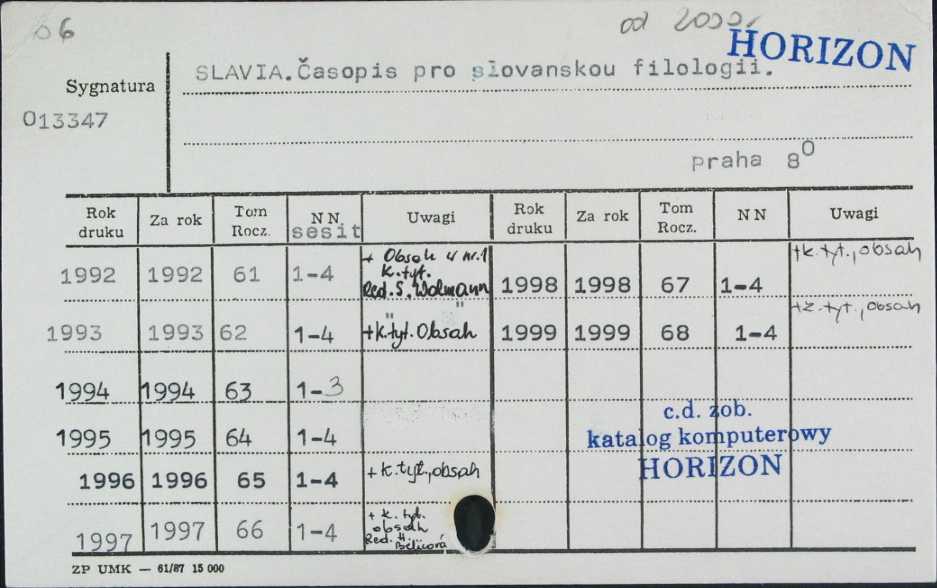 06
od 2000r
HORIZON
Sygnatura
SLAVIA.Časopis pro slovanskou filologii.
013347
praha 8⁰
Rok druku Za rok Tom Rocz. NN sesit Uwagi Rok druku Za rok Tom Rocz. NN Uwagi
1992 1992 61 1-4 + Obsah w nr.1 K.tyt. Red. S. Wolmann 1998 1998 67 1-4 +k.tyt., obsah
1993 1993 62 1-4 " " +k.tyt. Obsah 1999 1999 68 1-4 +k.tyt., obsah
1994 1994 63 1-3
c.d. zob.
1995 1995 64 1-4
katalog komputerowy
HORIZON
1996 1996 65 1-4 +k.tyt., obsah
1997 1997 66 1-4 + k. tyt. obsah Red. H.
ZP UMK — 61/87 15 000